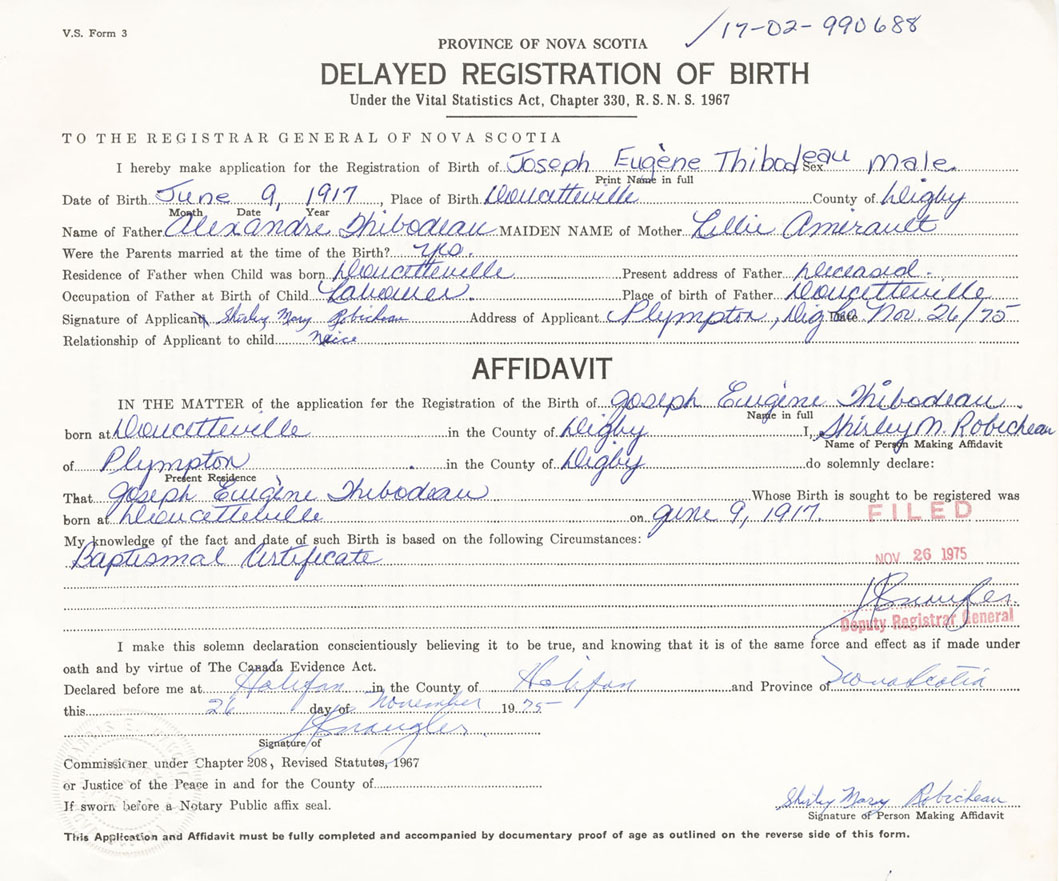 V.S. Form 3
17-02-990688
PROVINCE OF NOVA SCOTIA
DELAYED REGISTRATION OF BIRTH
Under the Vital Statistics Act, Chapter 330, R. S. N. S. 1967
TO THE REGISTRAR GENERAL OF NOVA SCOTIA
I hereby make application for the Registration of Birth of Joseph Eugène Thibodeau Sex male.
Print Name in full
Date of Birth June 9, 1917, Place of Birth Doucetteville County of Digby
Month Date Year
Name of Father Alexandre Thibodeau MAIDEN NAME of Mother Lillie Amirault
Were the Parents married at the time of the Birth? yes.
Residence of Father when Child was born Doucetteville Present address of Father Deceased.
Occupation of Father at Birth of Child Labourer. Place of birth of Father Doucetteville
Signature of Applicant Shirley Mary Robicheau Address of Applicant Plympton, Dig Date Nov. 26/75
Relationship of Applicant to child Neice
AFFIDAVIT
IN THE MATTER of the application for the Registration of the Birth of Joseph Eugène Thibodeau
Name in full
born at Doucetteville in the County of Digby I, Shirley M. Robicheau
Name of Person Making Affidavit
of Plympton in the County of Digby do solemnly declare:
Present Residence
That Joseph Eugène Thibodeau Whose Birth is sought to be registered was
born at Doucetteville on June 9, 1917.
FILED
My knowledge of the fact and date of such Birth is based on the following Circumstances:
Baptismal Certificate
NOV 26 1975
Deputy Registrar General
I make this solemn declaration conscientiously believing it to be true, and knowing that it is of the same force and effect as if made under
oath and by virtue of The Canada Evidence Act.
Declared before me at Halifax in the County of Halifax and Province of Nova Scotia
this 26 day of November 19 75
Signature of
Commissioner under Chapter 208, Revised Statutes, 1967
or Justice of the Peace in and for the County of
If sworn before a Notary Public affix seal.
Shirley Mary Robicheau
Signature of Person Making Affidavit
This Application and Affidavit must be fully completed and accompanied by documentary proof of age as outlined on the reverse side of this form.